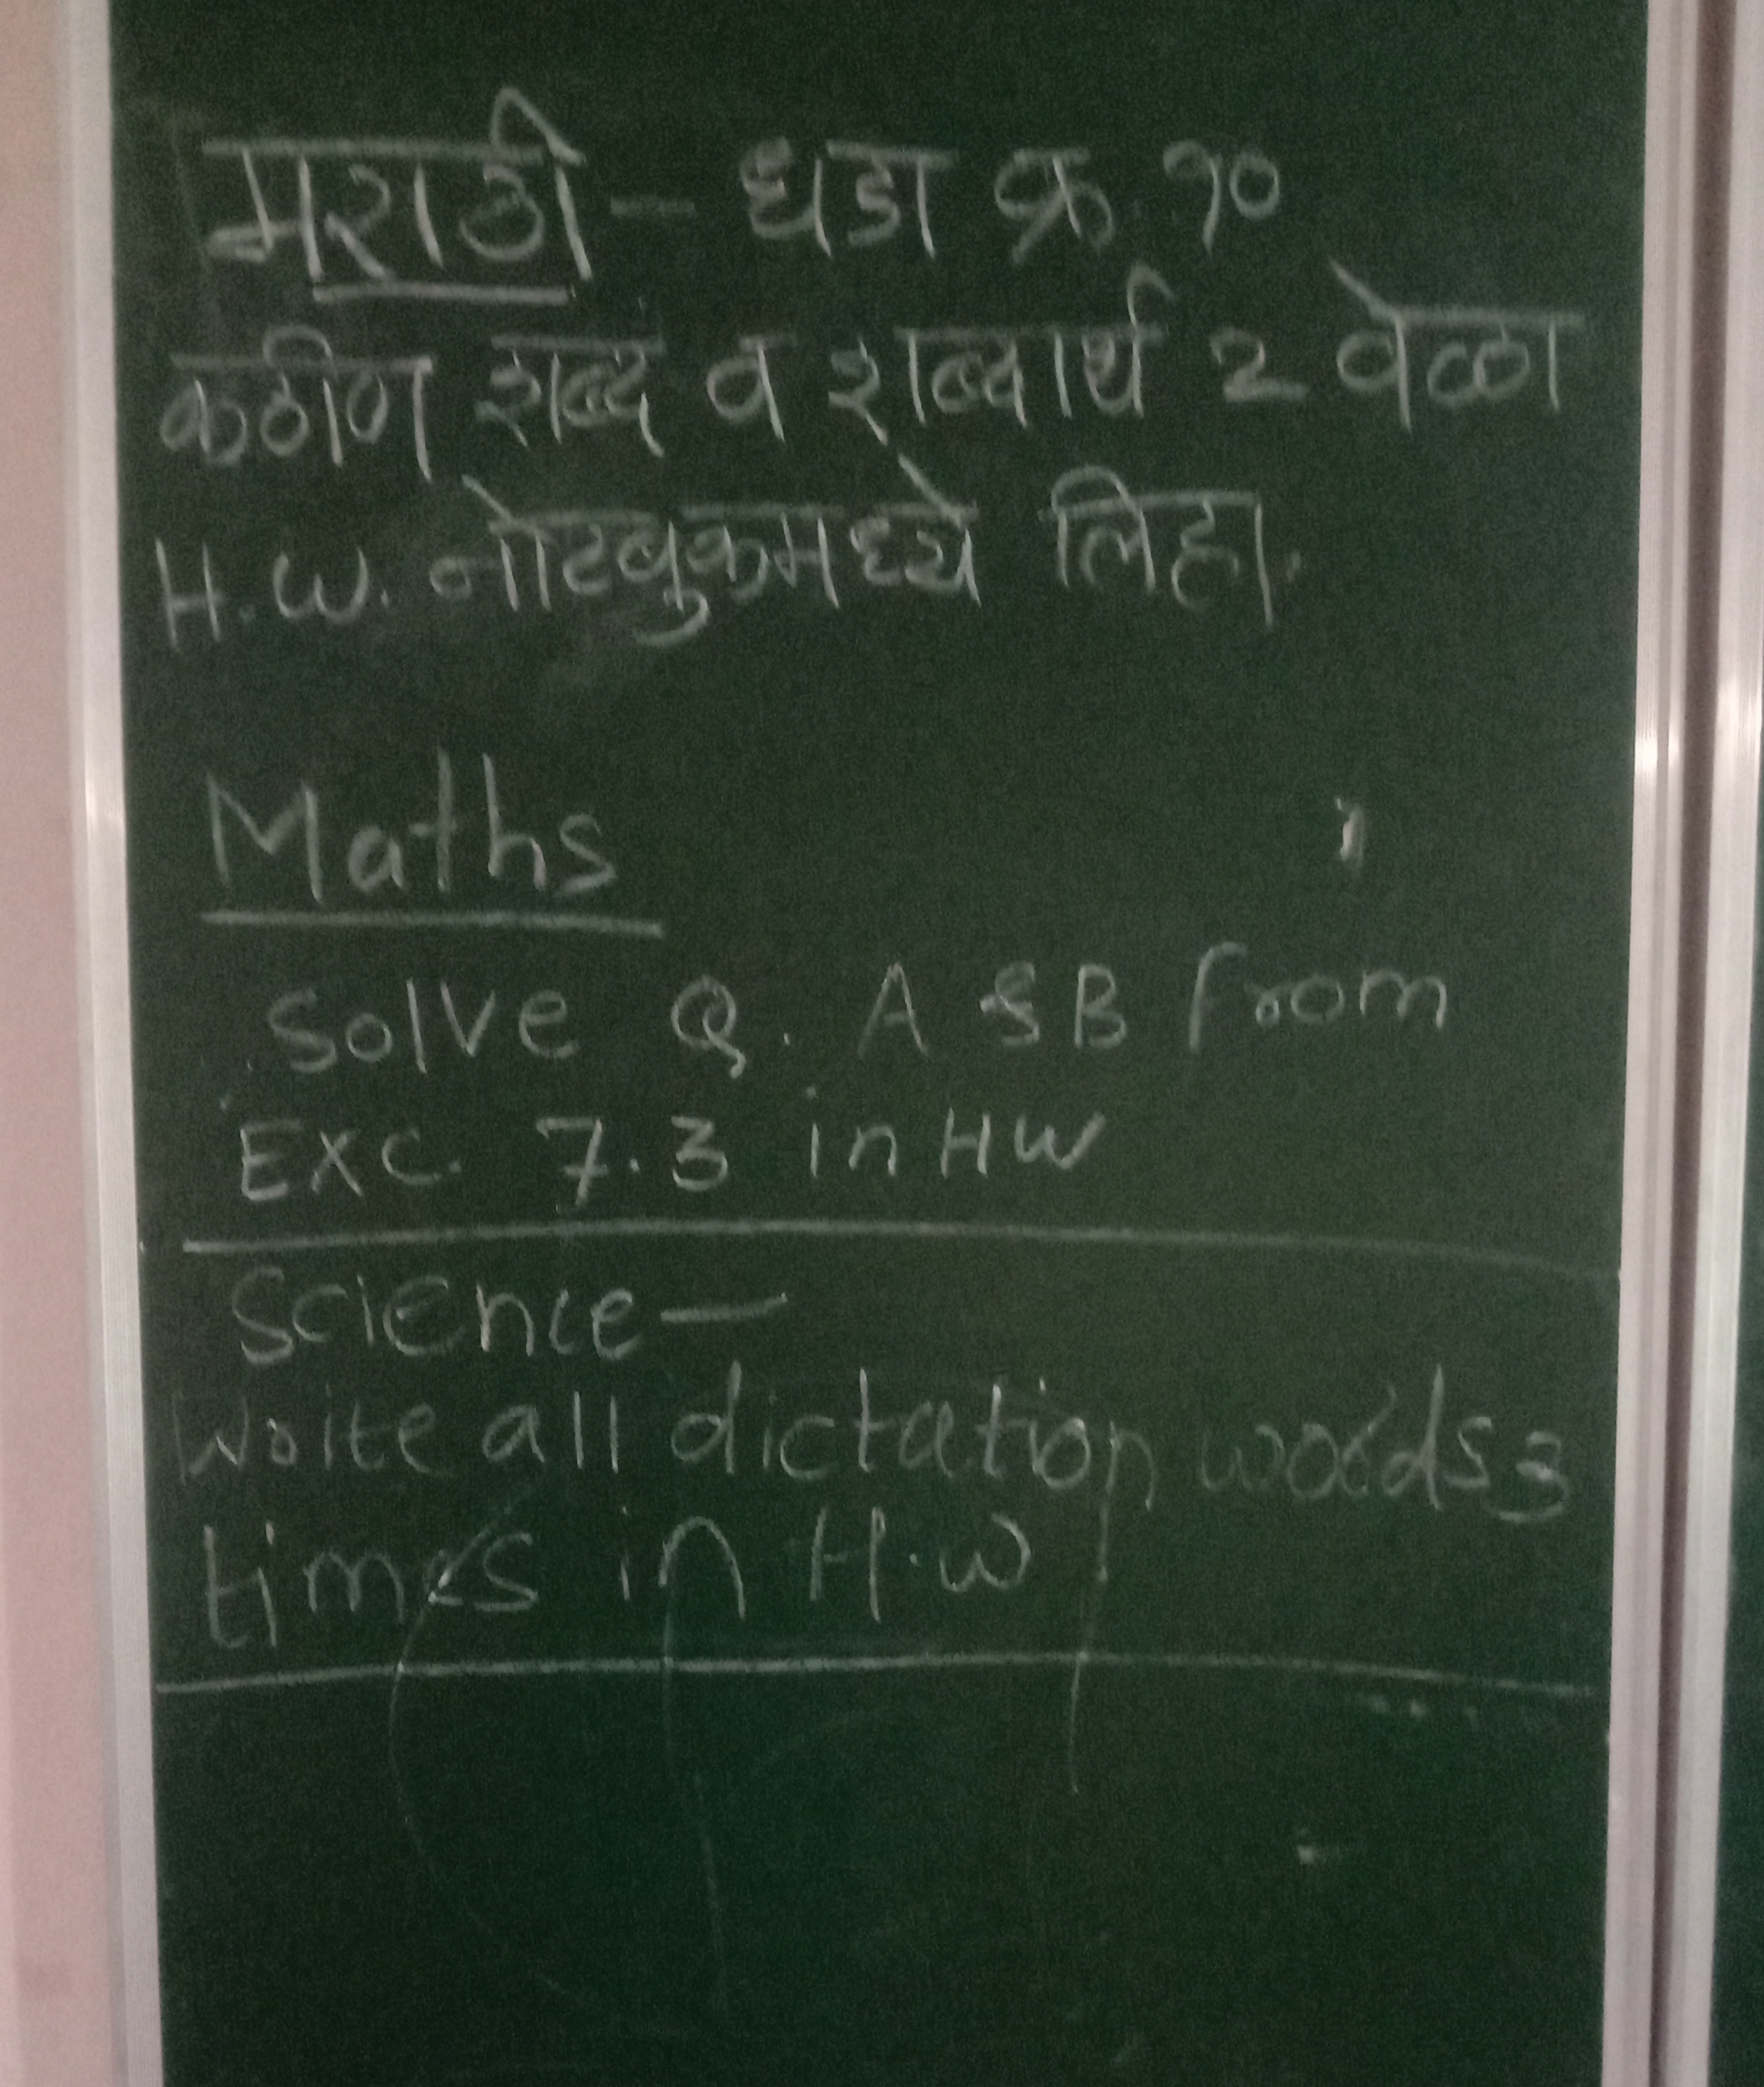 मराठी - धडा क्र. १०
कठीण शब्द व शब्दार्थ 2 वेळा
H.W. नोटबुकमध्ये लिहा.
Maths
Solve Q. A & B from
Exc. 7.3 in HW
Science -
Write all dictation words 3
times in H.W